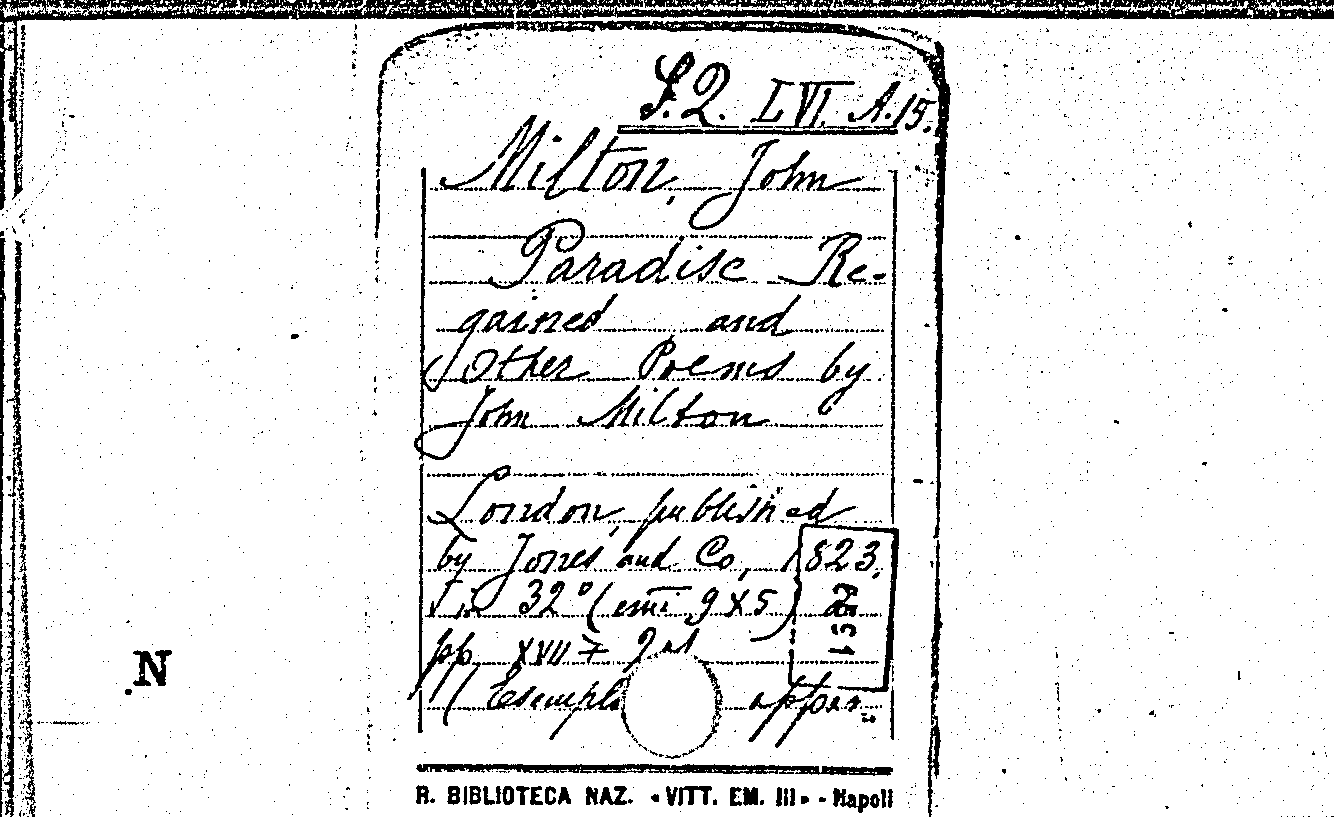 S.Q. LVI. A.15.
Milton, John
Paradise Re-
gained and
Other Poems by
John Milton
London, published
by Jones and Co, 1823.
32° (cmi 9x5)
pp XVII +
(Esempl appar-
N
R. BIBLIOTECA NAZ. «VITT. EM. III» - Napoli